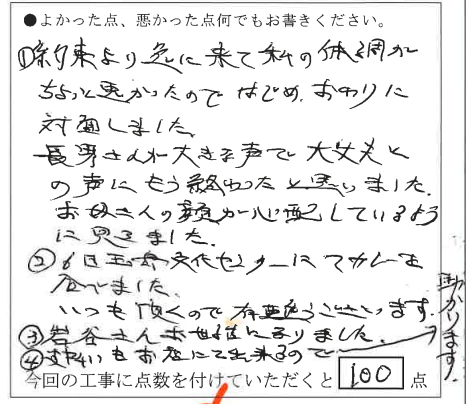 ●よかった点、悪かった点何でもお書きください。
①約束より急に来て私の体調が
ちょっと悪かったので はじめ、おわりに
対面しました。
長男さんが大きな声で 大丈夫と
の声に もう終わったと思いました。
お母さんの顔が心配しているよう
に見えました。
② 6日 文化センターにて
いつも頂くので 有難うございます。
③ 岩谷さんお世話になりました。
④ 支払いもお店にて出来るので
助かります。
今回の工事に点数を付けていただくと 100 点